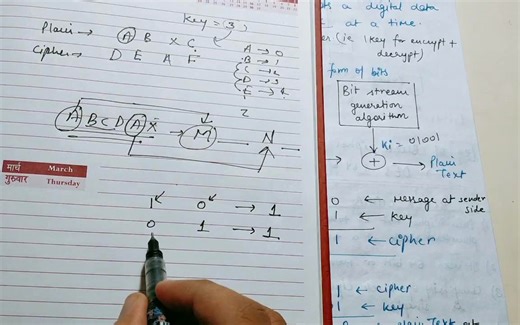 Key = 3,
Plain → A B X C.
Cipher → D E A F
A → 0
B → 1
C → 2
D → 3
E → 4
2
A B C D A X → M N
मार्च March
गुरुवार Thursday
1 0 → 1
0 1 → 1
a digital data
at a time.
(ie 1 key for encrypt +
decrypt)
form of bits
Bit stream
generation
algorithm
Ki = 01001
+ → Plain
Text
0 ← Message at sender
side
1 ← Key
1 ← Cipher
1 ← cipher
1 ← key